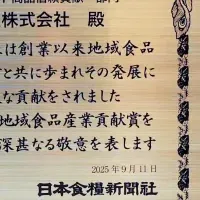 株式会社 殿
は創業以来地域食品
と共に歩まれその発展に
な貢献をされました
地域食品産業貢献賞を
深甚なる敬意を表します
2025年9月11日
日本食糧新聞社